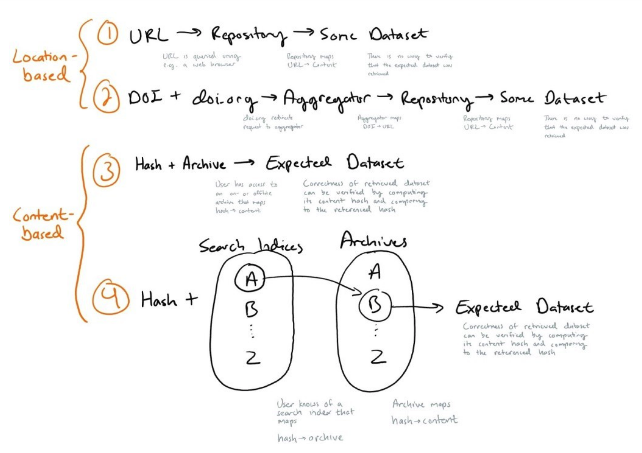 Location-
based
1 URL → Repository → Some Dataset
URL is queried using
e.g. a web browser
Repository maps
URL → Content
There is no way to verify
that the expected dataset was
retrieved
2 DOI + doi.org → Aggregator → Repository → Some Dataset
doi.org redirects
request to aggregator
Aggregator maps
DOI → URL
Repository maps
URL → Content
There is no way to verify
that the expected dataset was
retrieved
Content-
based
3 Hash + Archive → Expected Dataset
User has access to
an on- or offline
archive that maps
hash → content
Correctness of retrieved dataset
can be verified by computing
its content hash and comparing
to the referenced hash
Search Indices
Archives
4 Hash +
A
B
⋮
Z
A
B
⋮
Z
→ Expected Dataset
Correctness of retrieved dataset
can be verified by computing
its content hash and comparing
to the referenced hash
User knows of a
search index that
maps
hash → archive
Archive maps
hash → content